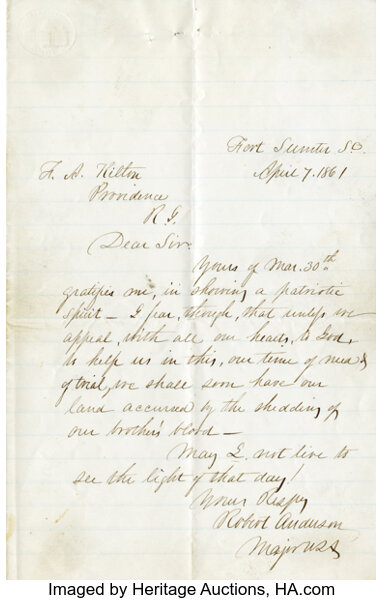 Fort Sumter S.C.
April 7. 1861
F. A. Hilton
Providence
R. I.
Dear Sir:
Yours of Mar. 30th
gratifies me, in showing a patriotic
spirit — I fear, though, that unless we
appeal, with all our hearts, to God,
to help us in this, our time of need &
of trial, we shall soon have our
land accursed by the shedding of
our brother's blood —
May I not live to
see the light of that day!
Yours Respy
Robert Anderson
Major USA
Imaged by Heritage Auctions, HA.com